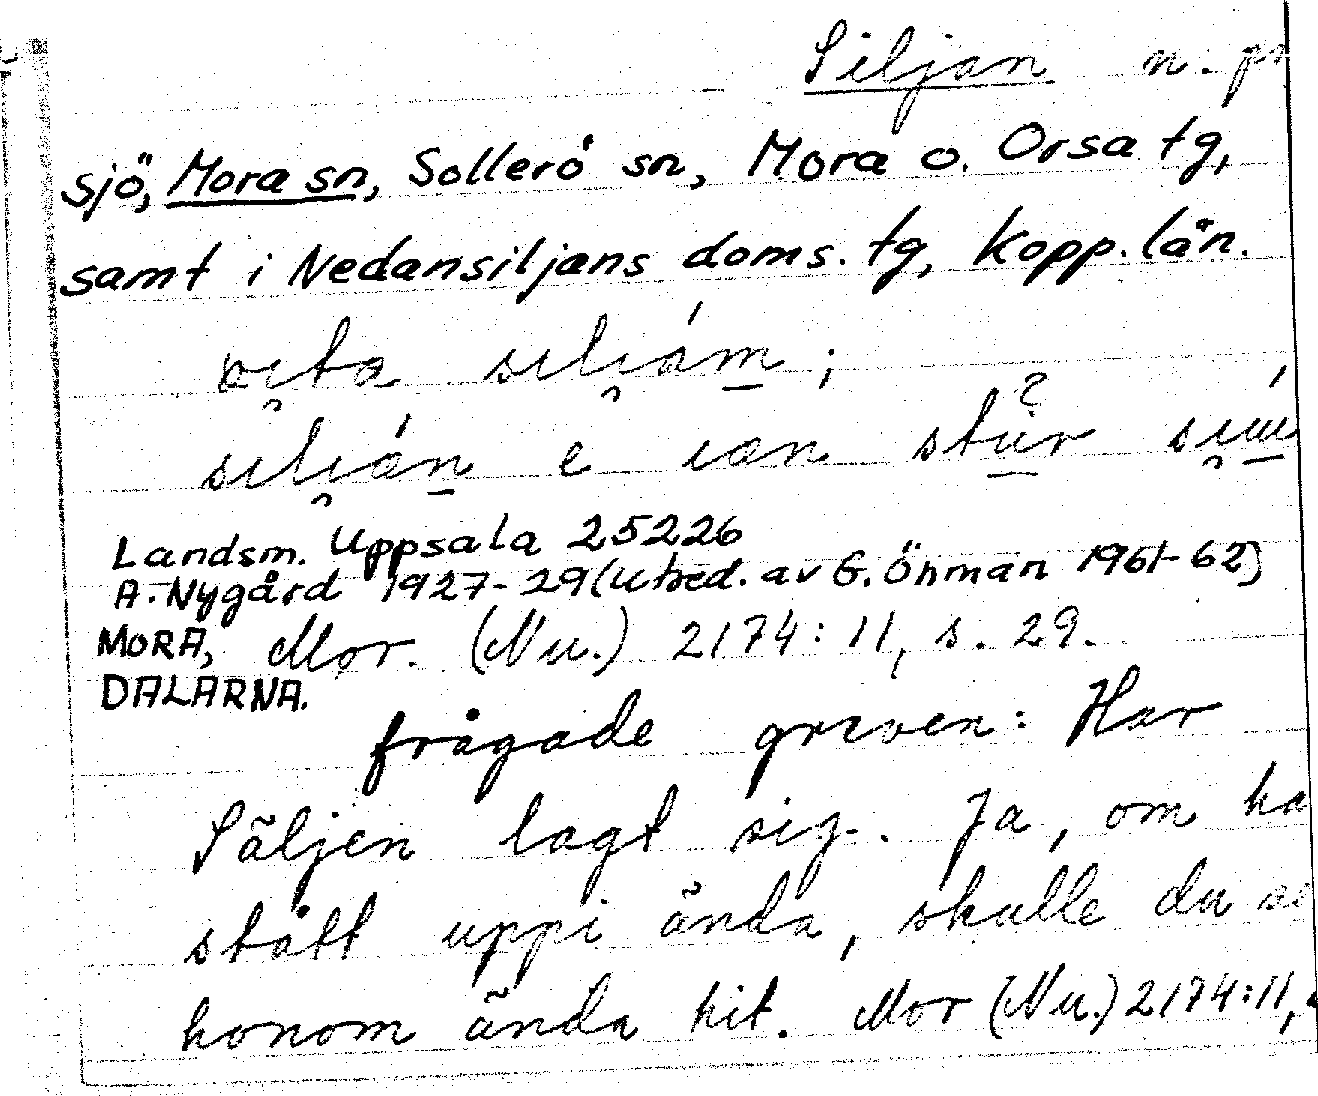 Siljan n. pr
sjö, Mora sn, Sollerö sn, Mora o. Orsa tg,
samt i Nedansiljans doms. tg, Kopp. län.
siljan e ıan stür
Landsm. Uppsala 25226
A. Nygård 1927-29 (Utred. av G. Öhman 1961-62)
MORA, Mor. (Nu.) 2174:11, s. 29.
DALARNA.
frågade greven: Har
Säljen lagt sig. Ja, om ha
stått uppi ända, skulle du
honom ända hit. Mor (Nu.) 2174:11,